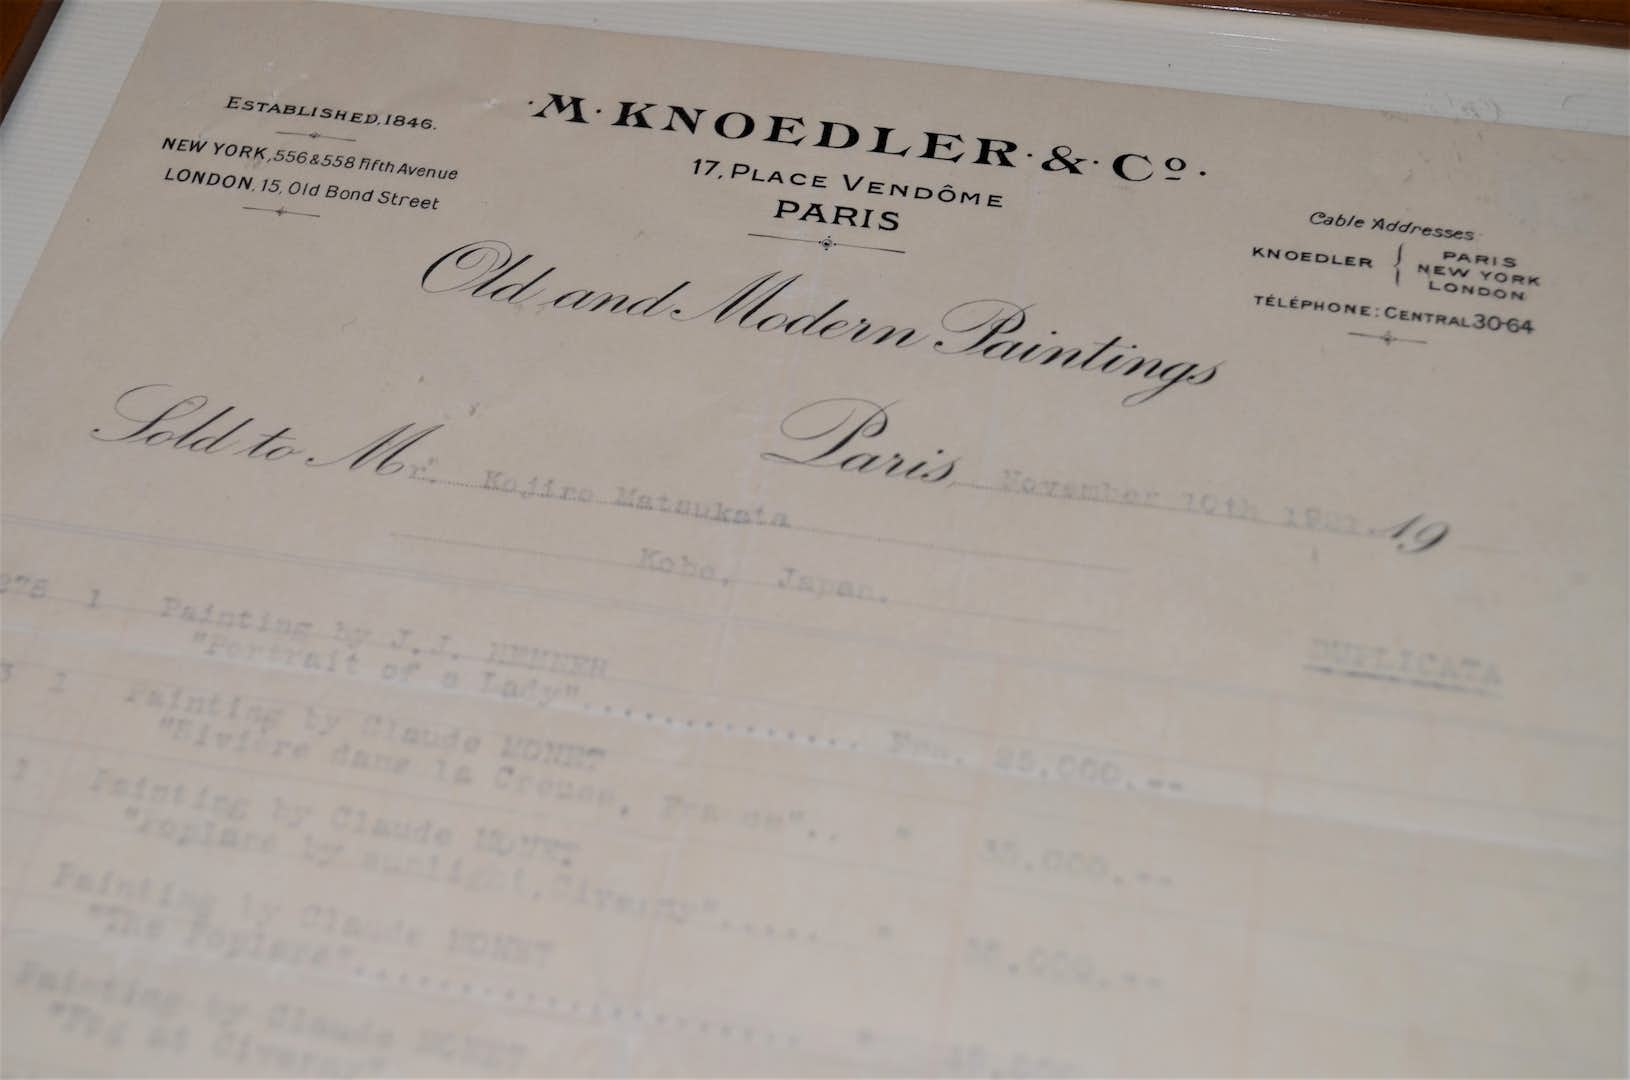 ·M·KNOEDLER·&·Cº·
17, PLACE VENDÔME
PARIS
ESTABLISHED, 1846.
NEW YORK, 556 & 558 Fifth Avenue
LONDON, 15, Old Bond Street
Cable Addresses
KNOEDLER { PARIS
NEW YORK
LONDON
TÉLÉPHONE: CENTRAL 30-64
Old and Modern Paintings
Paris, November 10th 1921. 19
Sold to Mr. Kojiro Matsukata
Kobe, Japan.
DUPLICATA
1 Painting by J.J. HENNER
"Portrait of a Lady".............. Frs. 25.000.--
1 Painting by Claude MONET
"Rivière dans la Creuse, France".. " 35.000.--
1 Painting by Claude MONET
"Poplars by sunlight, Giverny"..... "
Painting by Claude MONET
"The Poplars"...................... "
Painting by Claude MONET
"Fog at Giverny"